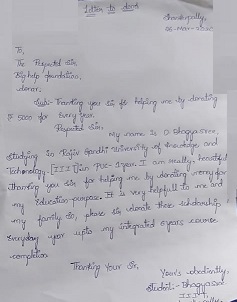 Letter to donor
05-Mar-2025
To,
The Respected Sir,
Big help foundation,
donor;
Sub:- Thanking you sir for helping me by donating
₹ 5000 for Every year.
Respected Sir,
My name is O Bhagyasree,
Studying in Rajiv Gandhi University of Knowledge and
Technology-[IIIT] in PUC-1 year. I am really, heartful
thanking you sir for helping me by donating money for
my Education purpose. It is very helpfull to me and
my family. So, please sir donate these scholarship
Everyday year upto my integrated 6 years course
completion.
Thanking You Sir,
Your's obediently,
Student:- Bhagyasree
IIIT,